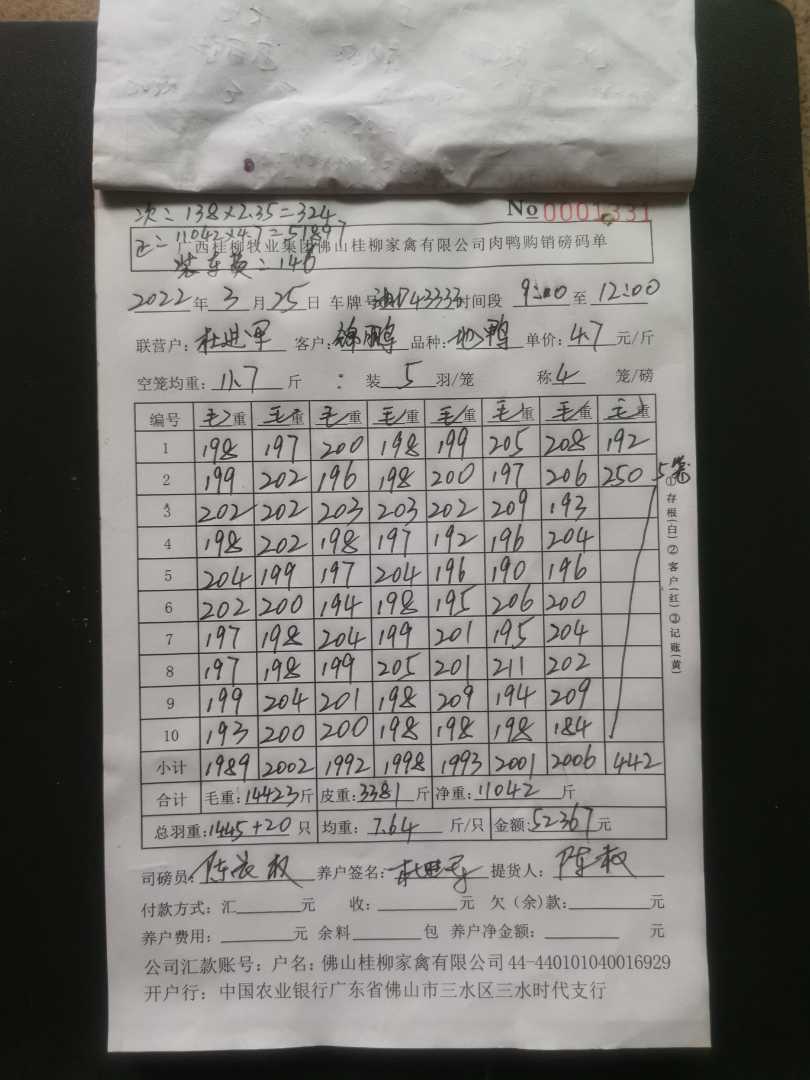 No 0001331
次：138×2.35=324
正：11042×4.7=51897
广西桂柳牧业集团佛山桂柳家禽有限公司肉鸭购销磅码单
装车费：146
2022年3月25日 车牌号 43333 时间段 9:00 至 12:00
联营户：杜进军 客户：锦鹏 品种： 鸭 单价：4.7元/斤
空笼均重：11.7斤 : 装5羽/笼 称4笼/磅
编号 毛重 毛重 毛重 毛重 毛重 毛重 毛重 毛重
1 198 197 200 198 199 205 208 192
2 199 202 196 198 200 197 206 250 5笼
3 202 202 203 203 202 209 193
4 198 202 198 197 192 196 204
5 204 199 197 204 196 190 196
6 202 200 194 198 195 206 200
7 197 198 204 199 201 195 204
8 197 198 199 205 201 211 202
9 199 204 201 198 209 194 209
10 193 200 200 198 198 198 184
小计 1989 2002 1992 1998 1993 2001 2006 442
合计 毛重：14423斤 皮重：3381斤 净重：11042斤
总羽重：1445+20只 均重：7.64斤/只 金额：52367元
司磅员： 养户签名： 提货人：
付款方式：汇 元 收： 元 欠（余）款： 元
养户费用： 元 余料 包 养户净金额： 元
公司汇款账号：户名：佛山桂柳家禽有限公司44-440101040016929
开户行：中国农业银行广东省佛山市三水区三水时代支行
①存根(白)②客户(红)③记账(黄)